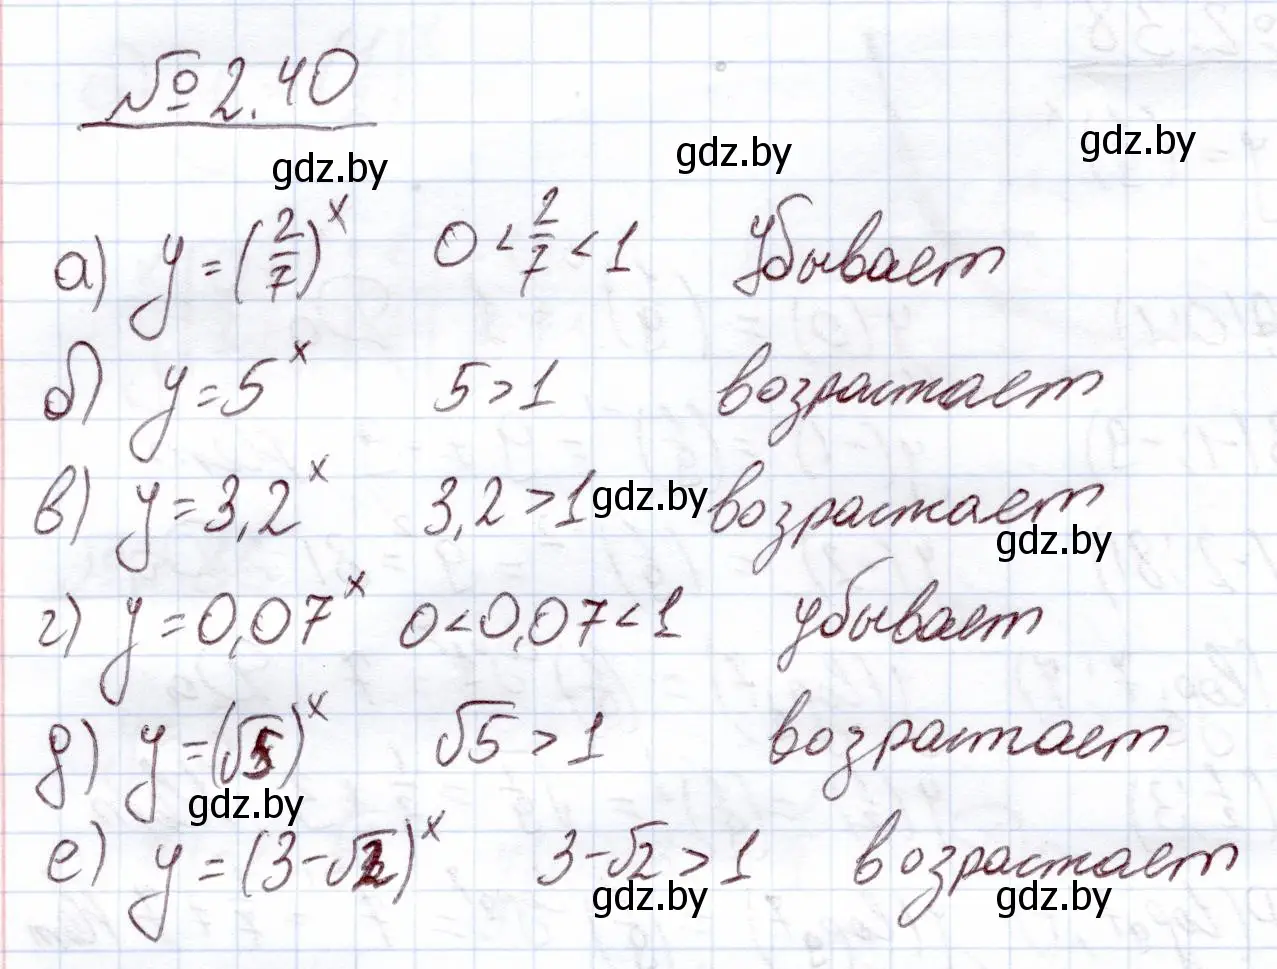 № 2.40
gdz.by gdz.by gdz.by
а) y = (2/7)^x 0 < 2/7 < 1 убывает
б) y = 5^x 5 > 1 возрастает
в) y = 3,2^x 3,2 > 1 gdz.by возрастает
gdz.by
г) y = 0,07^x 0 < 0,07 < 1 убывает
д) y = (√5)^x √5 > 1 возрастает
gdz.by
е) y = (3 - √2)^x 3 - √2 > 1 возрастает
gdz.by gdz.by